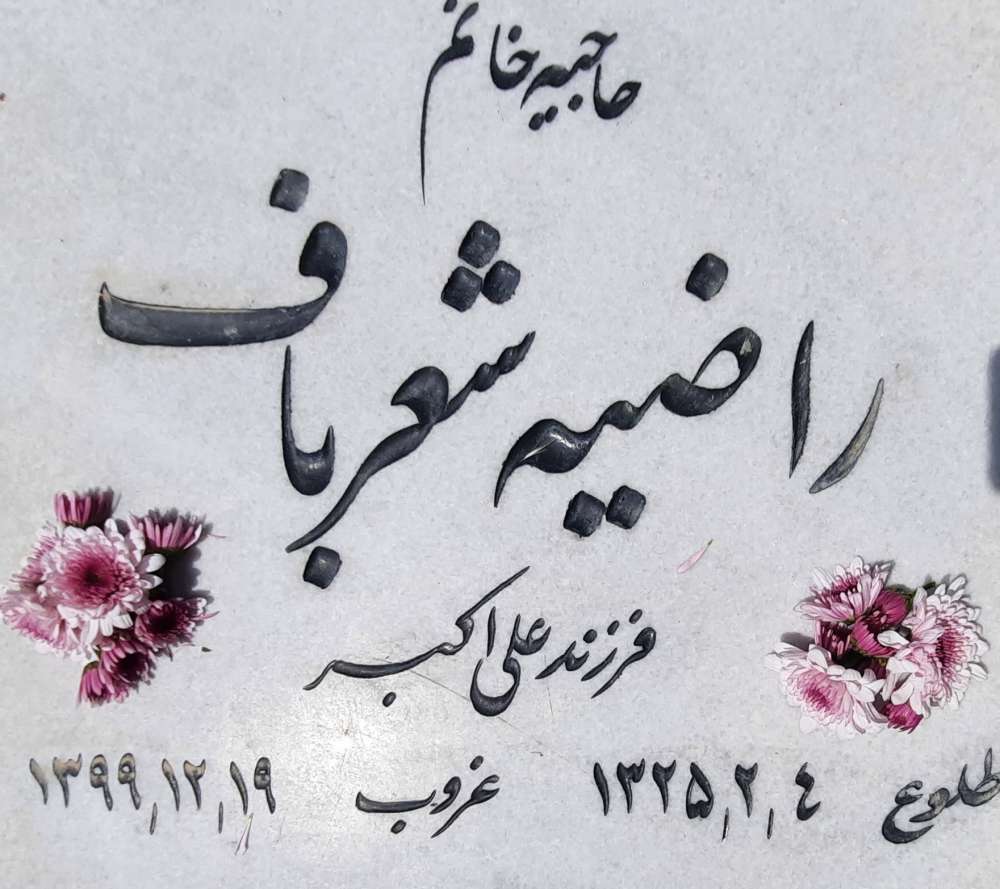 حاجیه خانم
راضیه شعرباف
فرزند علی اکبر
طلوع ۱۳۲۵٫۲٫۴ غروب ۱۳۹۹٫۱۲٫۱۹